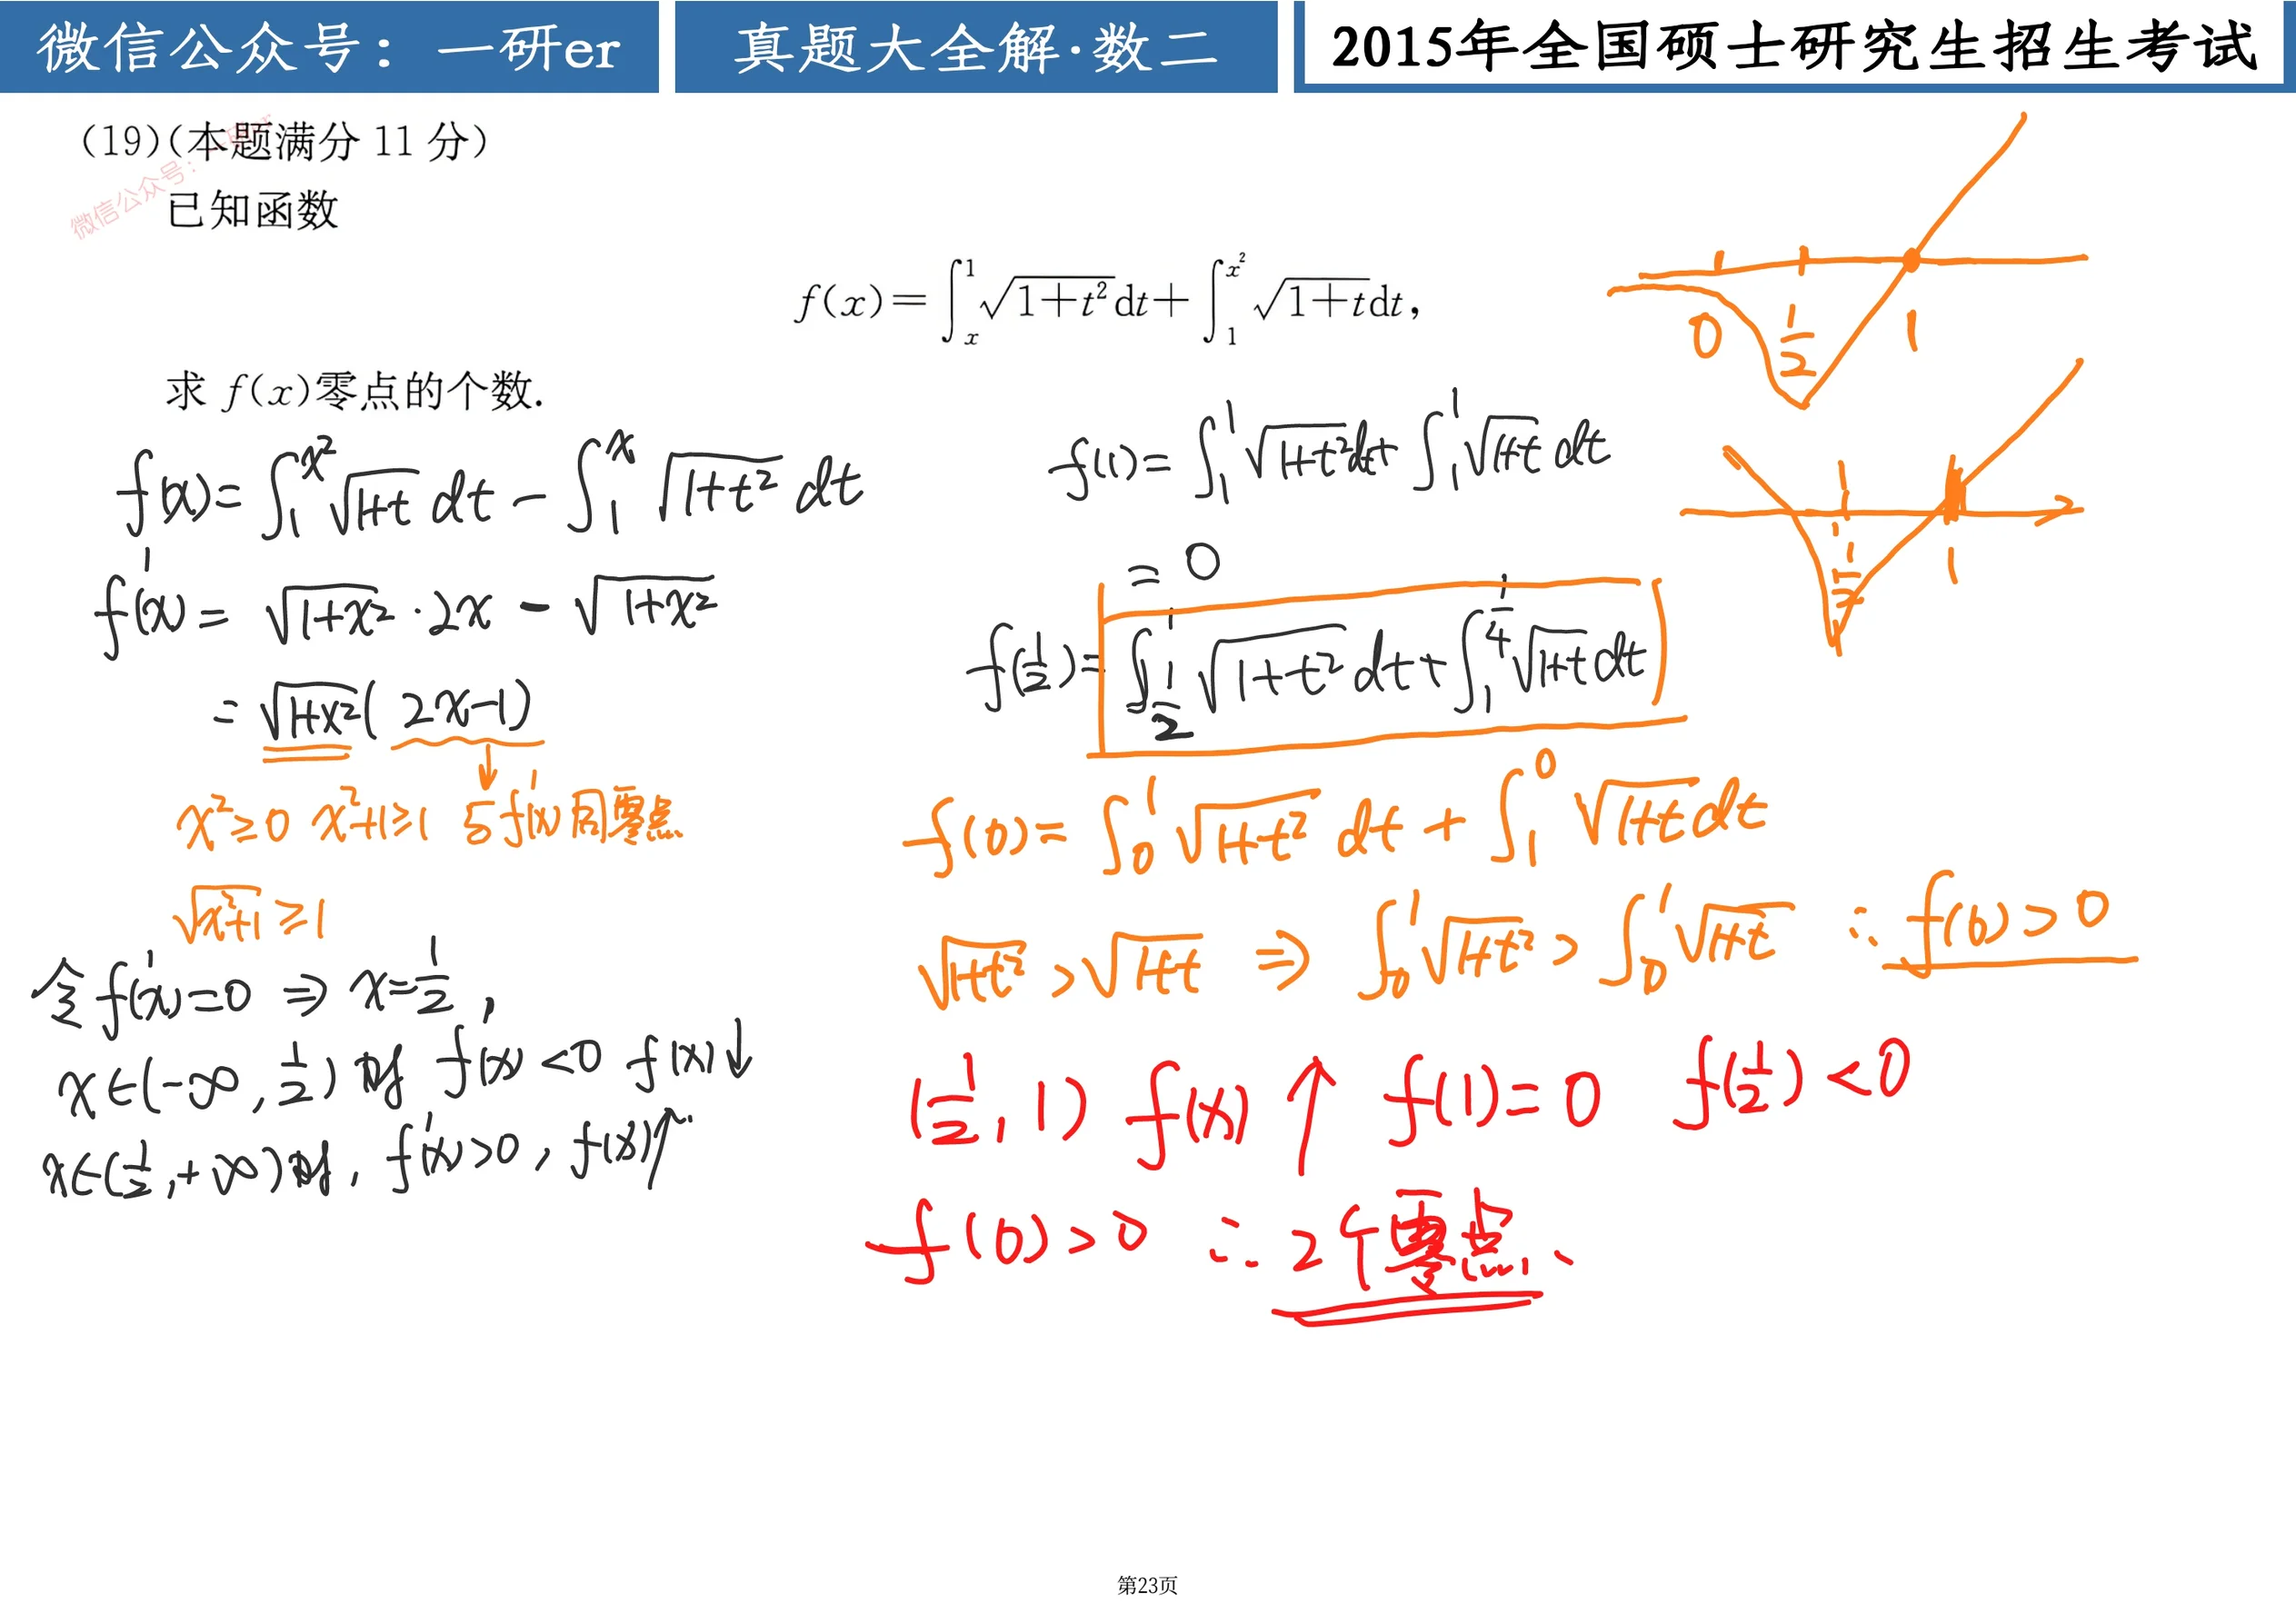 微信公众号：一研er
真题大全解·数二
2015年全国硕士研究生招生考试
(19)(本题满分 11 分)
微信公众号：
已知函数
f(x)=∫_x^1 √(1+t²)dt+∫_1^{x²} √(1+t)dt,
求 f(x)零点的个数.
f(x)=∫_1^{x²} √(1+t) dt - ∫_1^x √(1+t²) dt
f'(x)= √(1+x²)·2x - √(1+x²)
= √(1+x²)( 2x-1)
x²≥0 x²+1≥1 与f'(x)同零点
√(x²+1) ≥1
令f'(x)=0 ⇒ x=1/2,
x∈(-∞, 1/2)时 f'(x)<0 f(x)↓
x∈(1/2,+∞)时, f'(x)>0, f(x)↑
f(1)= ∫_1^1 √(1+t²)dt+ ∫_1^1 √(1+t) dt
= 0
f(1/2)= ∫_{1/2}^1 √(1+t²) dt+∫_1^{1/4} √(1+t)dt
f(0)= ∫_0^1 √(1+t²) dt + ∫_1^0 √(1+t)dt
√(1+t²) > √(1+t) ⇒ ∫_0^1 √(1+t²) > ∫_0^1 √(1+t) ∴ f(0)>0
(1/2, 1) f(x) ↑ f(1)=0 f(1/2)<0
f(0)>0 ∴ 2个零点、
0 1/2 1
1/2 1
第23页